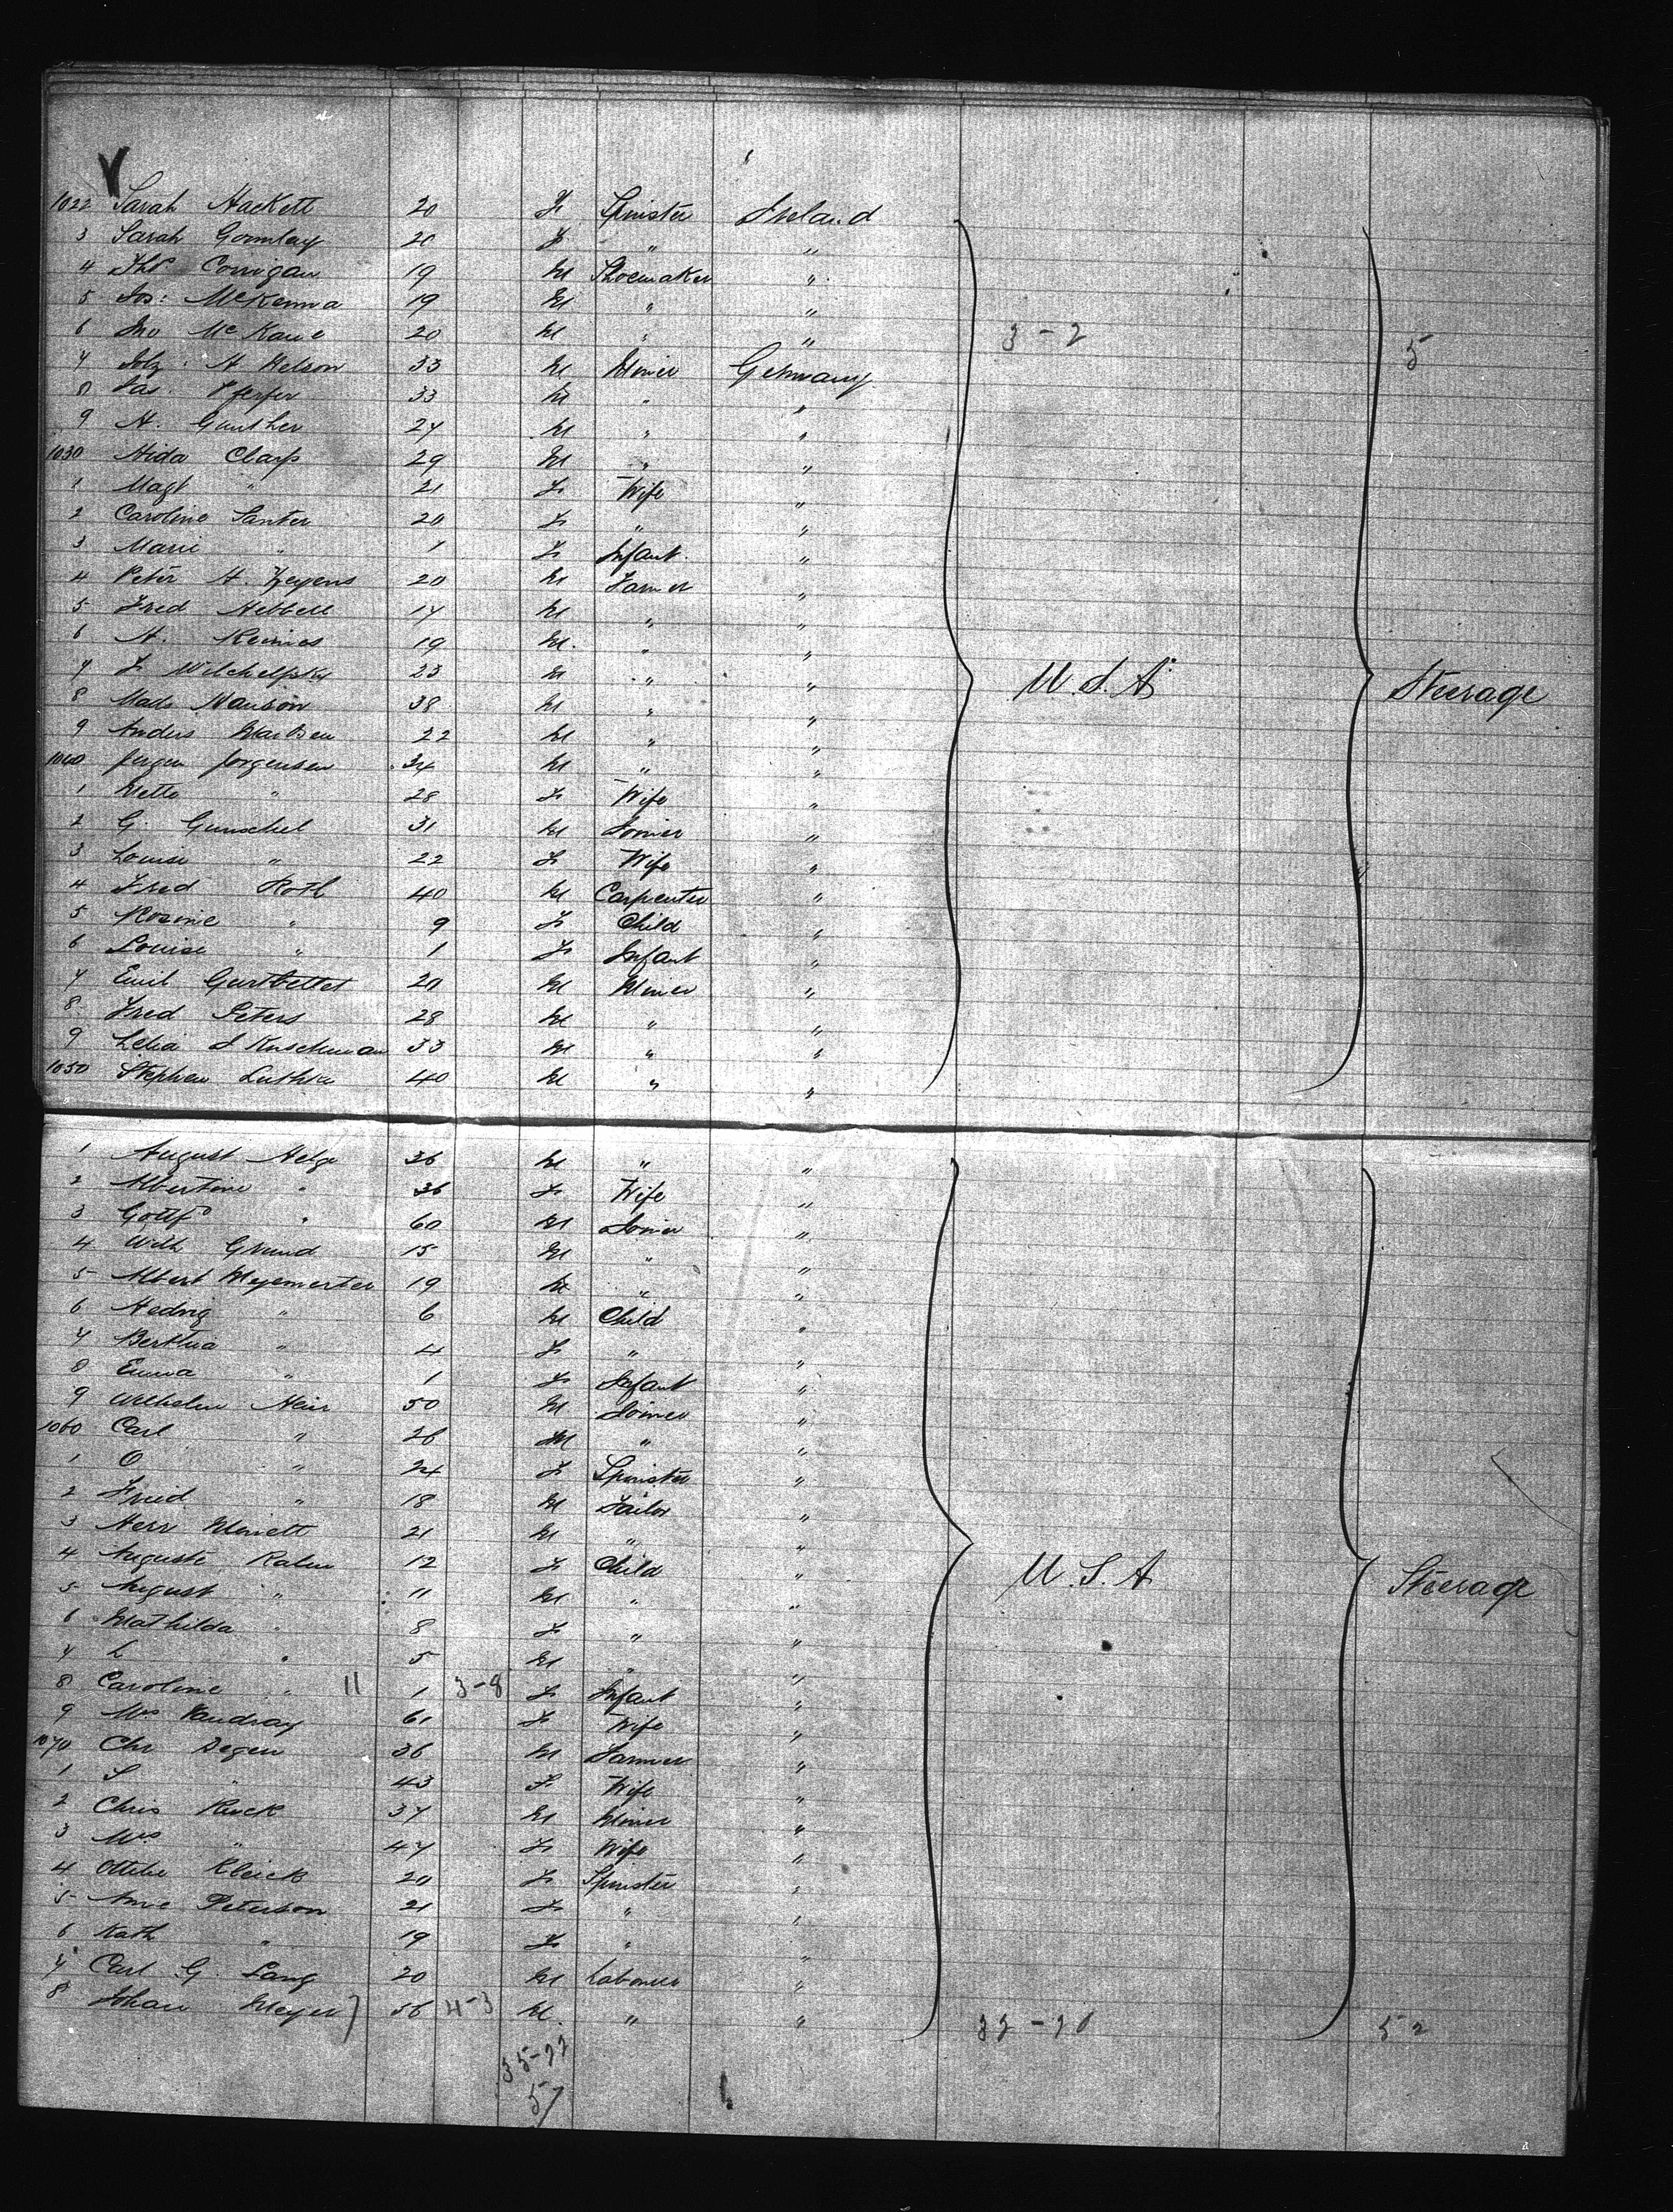 1022 Sarah Hackett 20 F Spinster Ireland
3 Sarah Gormley 20 F " "
4 Thos Corrigan 19 M Shoemaker "
5 Jos: McKenna 19 M " "
6 Jno McKane 20 M " " 3 - 2 5
7 A Nelson 33 M Miner Germany
8 33 M " "
9 H. Gunther 27 M " "
1030 Aida Clarp 29 M " "
1 Magt " 21 F Wife "
2 Caroline Santer 20 F " "
3 Marie " 1 F Infant "
4 Peter H. Zeyens 20 M Farmer "
5 Fred Hebbell 17 M " "
6 H. 19 M. " "
7 F 23 M " "
8 Mads Hanson 38 M " " U.S.A. Steerage
9 Anders 22 M " "
1040 Jurgen Jorgensen 34 M " "
1 Mette " 28 F Wife "
2 G. Gunschel 31 M Joiner "
3 Louise " 22 F Wife "
4 Fred Roth 40 M Carpenter "
5 Rosine " 9 F Child "
6 Louise " 1 F Infant "
7 Emil 20 M Miner "
8 Fred Peters 28 M " "
9 33 M " "
1050 Stephen 40 M " "
1 August Helge 36 M " "
2 Albertine " 36 F Wife "
3 Gottf " 60 M Joiner "
4 Wilh Grund 15 M " "
5 Albert 19 M " "
6 Hedwig " 6 M Child "
7 Bertha " 4 F " "
8 Emma " 1 F Infant "
9 Wilhelm Heir 50 M Joiner "
1060 Carl " 26 M " "
1 O " 24 F Spinster "
2 Fried " 18 M Tailor "
3 Herr 21 M " "
4 Auguste Kalm 12 F Child " U.S.A Steerage
5 August " 11 M " "
6 Mathilda " 8 F " "
7 L " 5 M " "
8 Caroline " 11 1 3-8 F Infant "
9 Mrs 61 F Wife "
1070 Chr Degen 36 M Farmer "
1 S " 43 F Wife "
2 Chris Ruck 37 M Miner "
3 Mrs " 47 F Wife "
4 Ottilie 20 F Spinster "
5 Anne Peterson 21 F " "
6 Kath " 19 F " "
7 Carl G. Lang 20 M Labourer "
8 Johan Meyer 56 4-3 M. " " 32 - 20 52
35-22
57